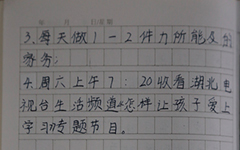 年 月 日星期
3、每天做1-2件力所能及的
家务;
4、周六上午7:20收看湖北电
视台生活频道《怎样让孩子爱上
学习》专题节目。